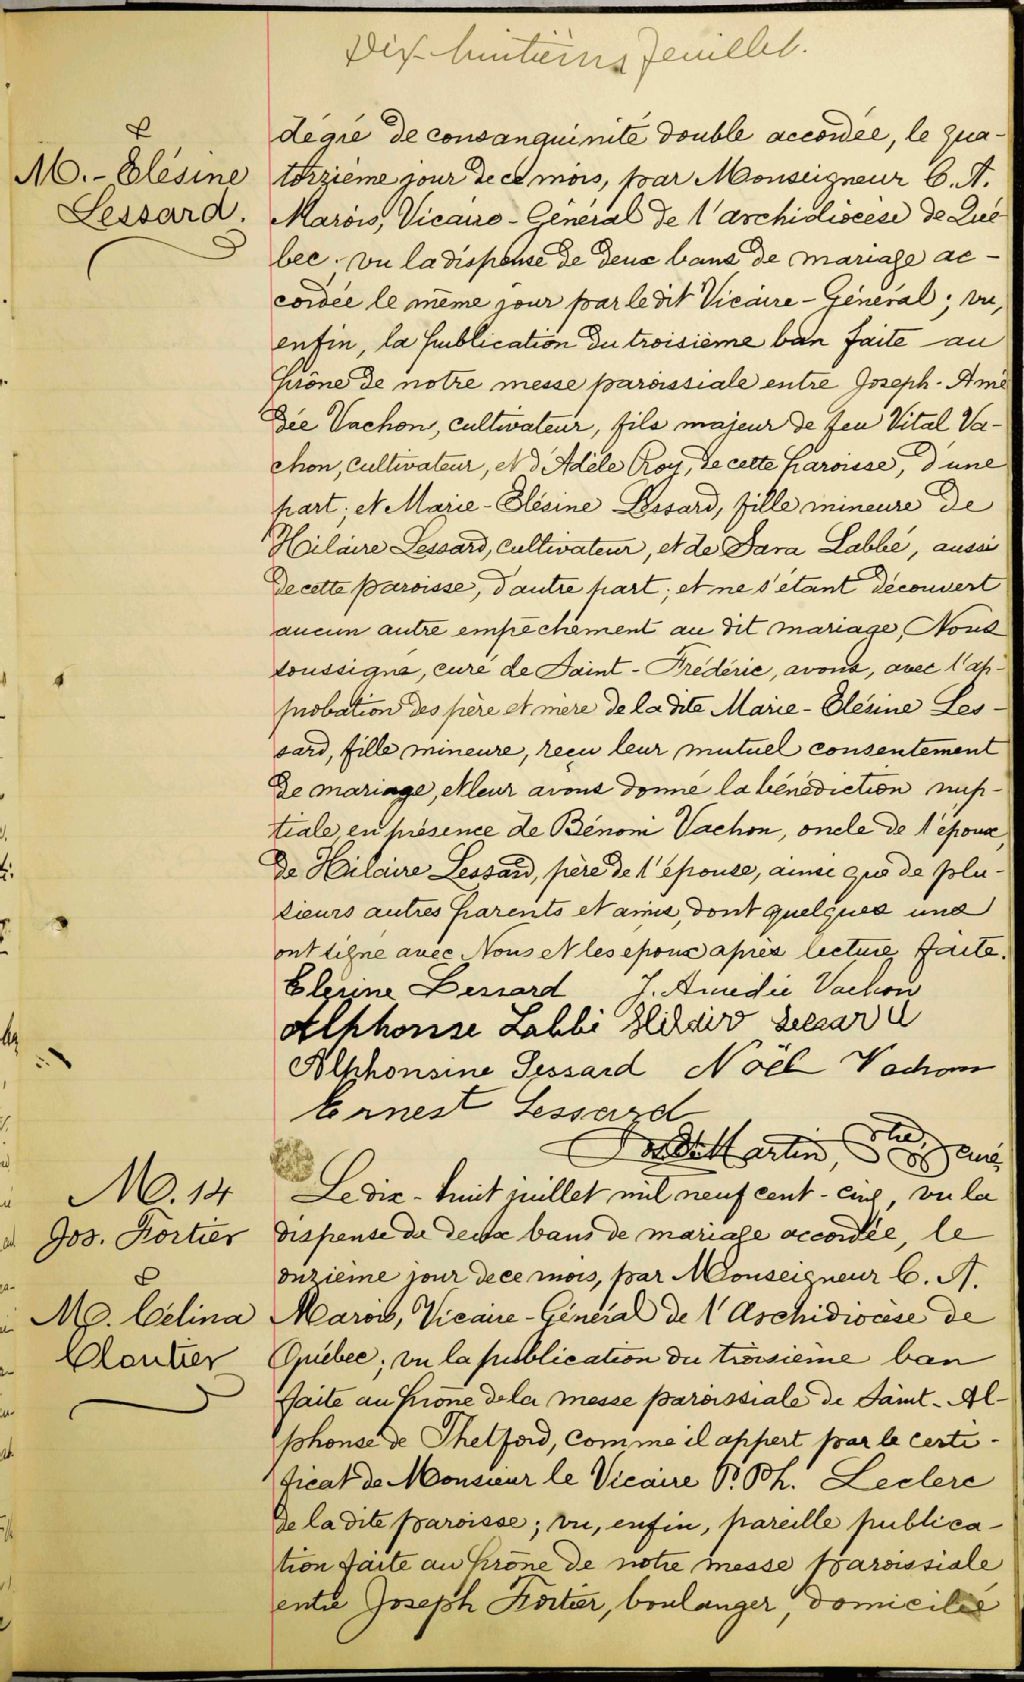 Dix-huitième feuillet.
&
M.-Elésine
Lessard.
dégré de consanguinité double accordée, le qua-
torzième jour de ce mois, par Monseigneur C. A.
Marois, Vicaire-Général de l'archidiocèse de Qué-
bec; vu la dispense de deux bans de mariage ac-
cordée le même jour par le dit Vicaire-Général; vu,
enfin, la publication du troisième ban faite au
prône de notre messe paroissiale entre Joseph-Amé
dée Vachon, cultivateur, fils majeur de feu Vital Va-
chon, cultivateur, et d'Adèle Roy, de cette paroisse, d'une
part; et Marie-Elésine Lessard, fille mineure de
Hilaire Lessard, cultivateur, et de Sara Labbé, aussi
de cette paroisse, d'autre part; et ne s'étant découvert
aucun autre empêchement au dit mariage, Nous
soussigné, curé de Saint-Frédéric, avons, avec l'ap-
probation des père et mère de la dite Marie-Elésine Les-
sard, fille mineure, reçu leur mutuel consentement
de mariage, et leur avons donné la bénédiction nup-
tiale en présence de Bénoni Vachon, oncle de l'époux,
de Hilaire Lessard, père de l'épouse, ainsi que de plu-
sieurs autres parents et amis, dont quelques uns
ont signé avec Nous et les époux après lecture faite.
Elesine Lessard J. Amedée Vachon
Alphonse Labbé Hilaire Lessard
Alphonsine Lessard Noël Vachon
Ernest Lessard
Martin, Ptre, curé
M. 14
Jos. Fortier
&
M. Célina
Cloutier
Le dix-huit juillet mil neuf cent-cinq, vu la
dispense de deux bans de mariage accordée, le
onzième jour de ce mois, par Monseigneur C. A.
Marois, Vicaire-Général de l'Archidiocèse de
Québec; vu la publication du troisième ban
faite au prône de la messe paroissiale de Saint-Al-
phonse de Thetford, comme il appert par le certi-
ficat de Monsieur le Vicaire P. Ph. Leclerc
de la dite paroisse; vu, enfin, pareille publica-
tion faite au prône de notre messe paroissiale
entre Joseph Fortier, boulanger, domicilié